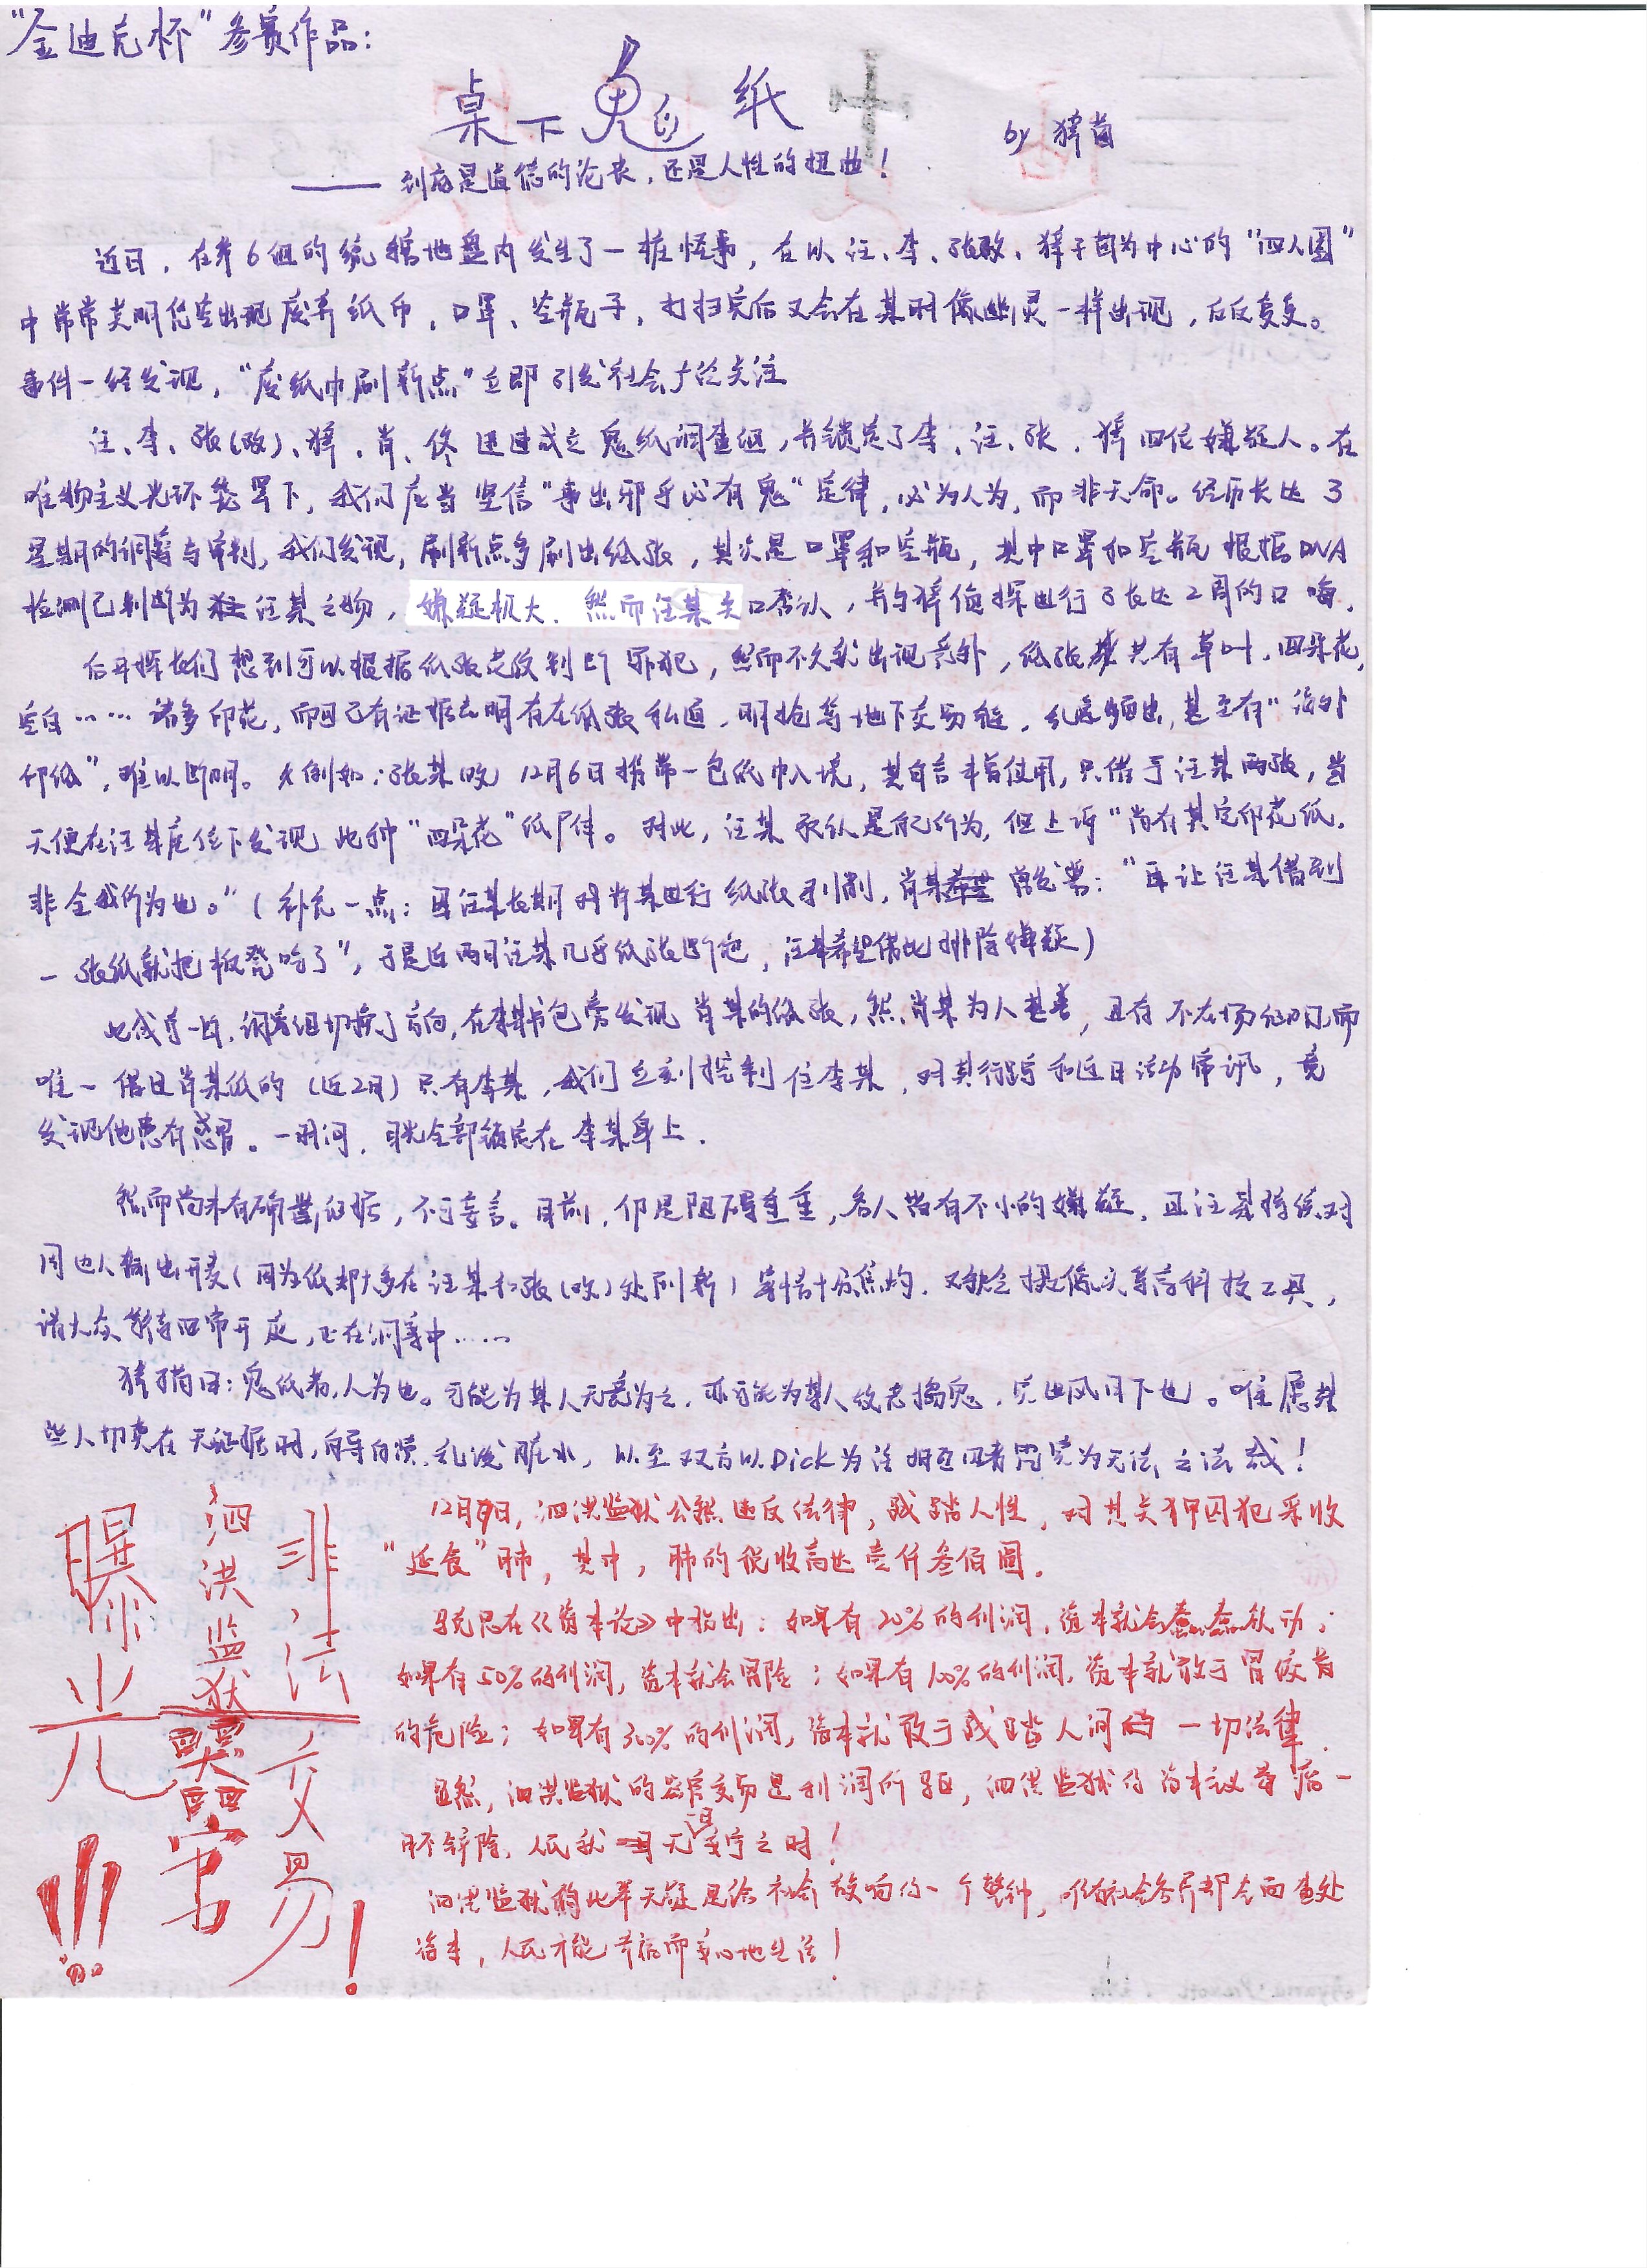 "金迪克杯"参赛作品：
桌下鬼纸
by 猹茴
—— 到底是道德的沦丧，还是人性的扭曲！
近日，在第6组的统据地盘内发生了一桩怪事，在以汪、李、张政、猹子茴为中心的"四人圈"
中常常莫明凭空出现废弃纸巾，口罩、空瓶子，打扫完后又会在某时像幽灵一样出现，反反复复。
事件一经发现，"废纸巾刷新点"立即引发社会广泛关注
汪、李、张(政)、猹、肖、佟迅速成立鬼纸调查组，并锁定了李、汪、张、猹四位嫌疑人。在
唯物主义光环笼罩下，我们应当坚信"事出邪乎必有鬼"定律，必为人为，而非天命。经历长达3
星期的调查与审判，我们发现，刷新点多刷出纸张，其次是口罩和空瓶，其中口罩和空瓶根据DNA
检测已判断为汪某之物，嫌疑极大．然而汪某矢口否认，并与猹侦探进行了长达2周的口嗨．
后再探长们想到可以根据纸张花纹判断罪犯，然而不久就出现意外，纸张共有草叶．四朵花，
空白……诸多印花，而且已有证据表明存在纸张私通．明抢等地下交易链，乱象频出，甚至有"海外
印纸"，难以断明。例如：张某政12月6日携带一包纸巾入境，其自言未曾使用，只借予汪某两张，当
天便在汪某座位下发现此种"四朵花"纸尸体。对此，汪某承认是所为，但上诉"尚有其它印花纸．
非全我所为也。"（补充一点：因汪某长期对肖某进行纸张剥削，肖某曾发誓："再让汪某借到
一张纸就把板凳吃了"，于是近两日汪某几乎纸张断绝，汪某希望借此排除嫌疑）
七成等一片，调查组切换了方向，在李某书包旁发现肖某的纸张，然肖某为人甚善，且存不在场证明，而
唯一借过肖某纸的（近2月）只有李某，我们立刻控制住李某，对其行踪和近日活动审讯，竟
发现他患有感冒。一时间，目光全部锁定在李某身上．
然而尚未有确凿证据，不可妄言。目前，仍是阻碍重重，各人皆有不小的嫌疑．且汪某持续对
周边人输出开麦（因为纸都大多在汪某和张(政)处刷新）事情十分焦灼．又缺乏摄像头等高科技工具，
请大众等待四审开庭，正在调查中……
猹子茴曰：鬼纸者，人为也。可能为某人无意为之．亦可能为某人故意搞鬼．实世风日下也。唯愿某
些人切莫在无证据时，自导自演，乱泼脏水，以至双方以Dick为法 为无法之法哉！
12月9日，泗洪监狱公然违反法律，践踏人性，对其关押囚犯采收
"延食"肺，其中，肺的税收高达壹仟叁佰圆．
马克思在《资本论》中指出：如果有20%的利润，资本就会蠢蠢欲动；
如果有50%的利润，资本就会冒险；如果有100%的利润，资本就敢于冒绞首
的危险；如果有300%的利润，资本就敢于践踏人间的一切法律．
显然，泗洪监狱的器官交易是利润所驱，泗洪监狱的资本议者病一
日不铲除，人民就无安宁之时！
泗洪监狱的此举无疑是给社会敲响的一个警钟，唯有社会各界都去面查处
资本，人民才能幸福而安心地生活！
曝光
泗洪监狱器官
非法交易！
!!!